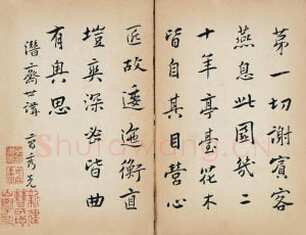 苐一切謝賓客
燕息此園幾二
十年亭臺花木
皆自其目營心
匠故逶迤衡直
塏爽深密皆曲
有奧思
潛齋世講